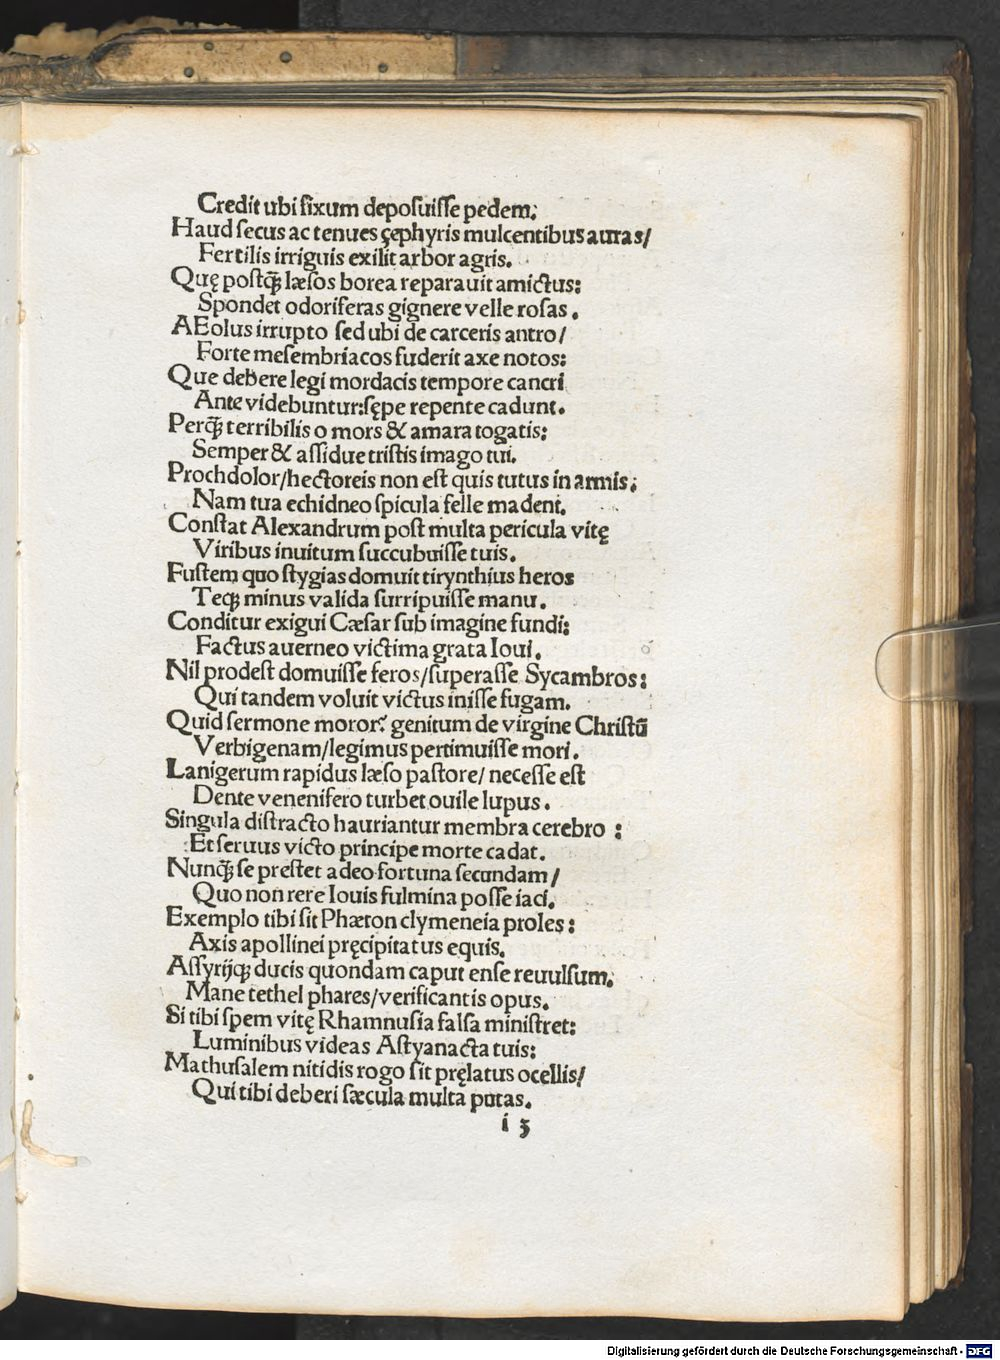 Credit ubi fixum deposuisse pedem:
Haud secus ac tenues çephyris mulcentibus auras/
Fertilis irriguis exilit arbor agris.
Quę postq̃ læsos borea reparauit amictus:
Spondet odoriferas gignere velle rosas.
AEolus irrupto sed ubi de carceris antro/
Forte mesembriacos fuderit axe notos:
Que debere legi mordacis tempore cancri
Ante videbuntur:sępe repente cadunt.
Perq̃ terribilis o mors & amara togatis:
Semper & assidue tristis imago tui.
Prochdolor/hectoreis non est quis tutus in armis:
Nam tua echidneo spicula felle madent.
Constat Alexandrum post multa pericula vitę
Viribus inuitum succubuisse tuis.
Fustem quo stygias domuit tirynthius heros
Teqꝫ minus valida surripuisse manu.
Conditur exigui Cæsar sub imagine fundi:
Factus auerneo victima grata Ioui.
Nil prodest domuisse feros/superasse Sycambros:
Qui tandem voluit victus inisse fugam.
Quid sermone moror? genitum de virgine Christū
Verbigenam/legimus pertimuisse mori.
Lanigerum rapidus læso pastore/ necesse est
Dente venenifero turbet ouile lupus.
Singula distracto hauriantur membra cerebro:
Et seruus victo principe morte cadat.
Nunq̃ se prestet adeo fortuna secundam/
Quo non rere Iouis fulmina posse iaci.
Exemplo tibi sit Phæton clymeneia proles:
Axis apollinei pręcipitatus equis.
Assyrijqꝫ ducis quondam caput ense reuulsum.
Mane tethel phares/verificantis opus.
Si tibi spem vitę Rhamnusia falsa ministret:
Luminibus videas Astyanacta tuis:
Mathusalem nitidis rogo sit pręlatus ocellis/
Qui tibi deberi sæcula multa putas.
i 3
Digitalisierung gefördert durch die Deutsche Forschungsgemeinschaft - DFG